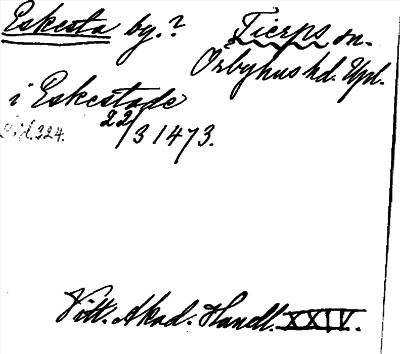 Eskesta by.? Tierps sn.
Örbyhus hd. Upl.
i Eskestade
sid. 324. 22/3 1473.
Vitt. Akad. Handl. XXIV.